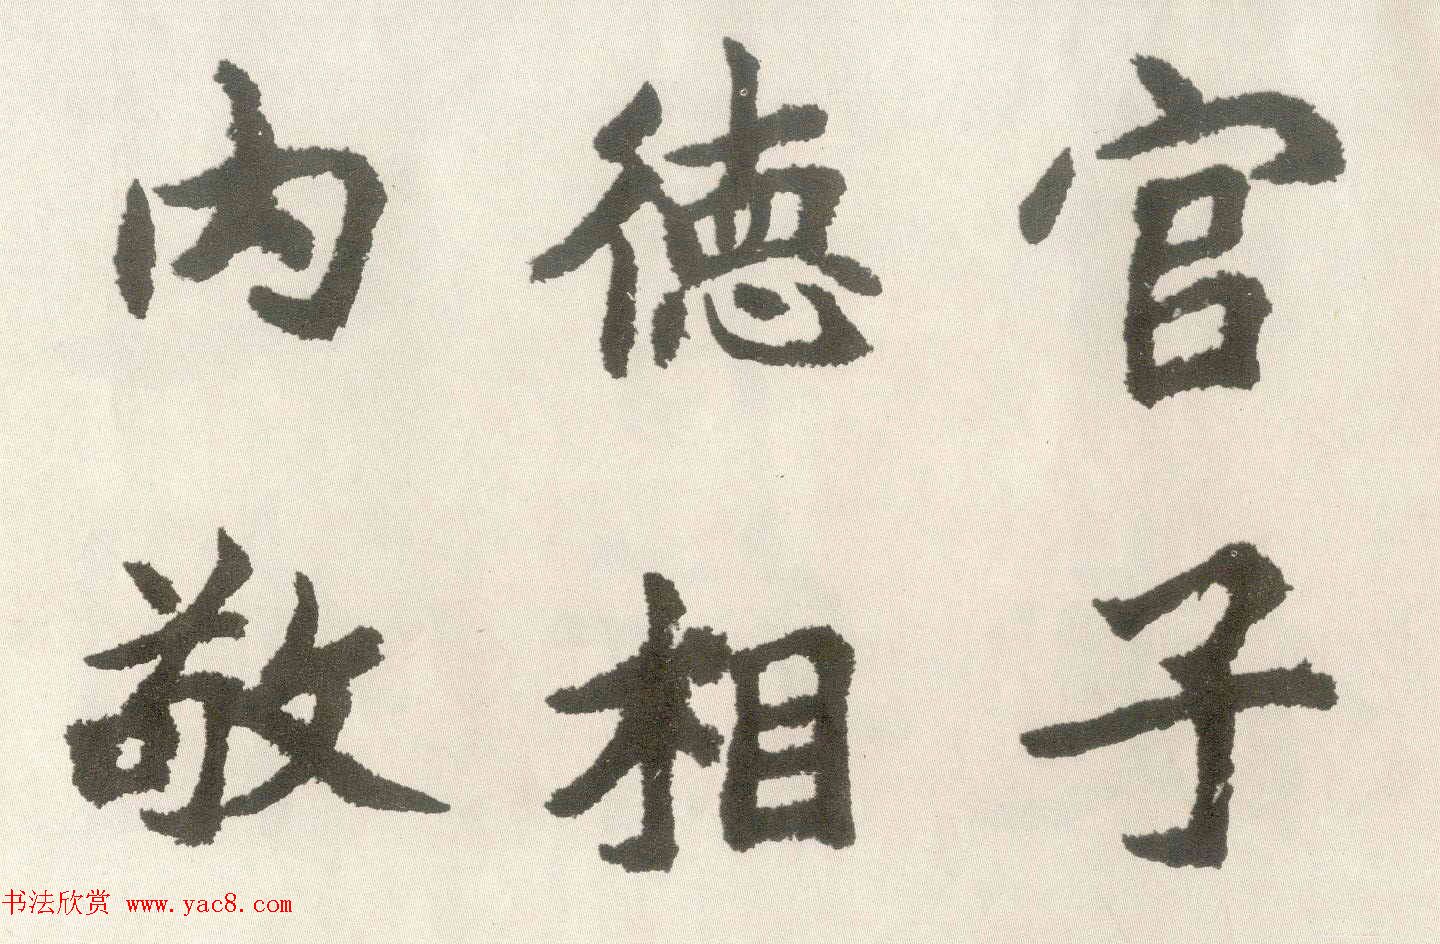 官子
德相
内敬
书法欣赏 www.yac8.com